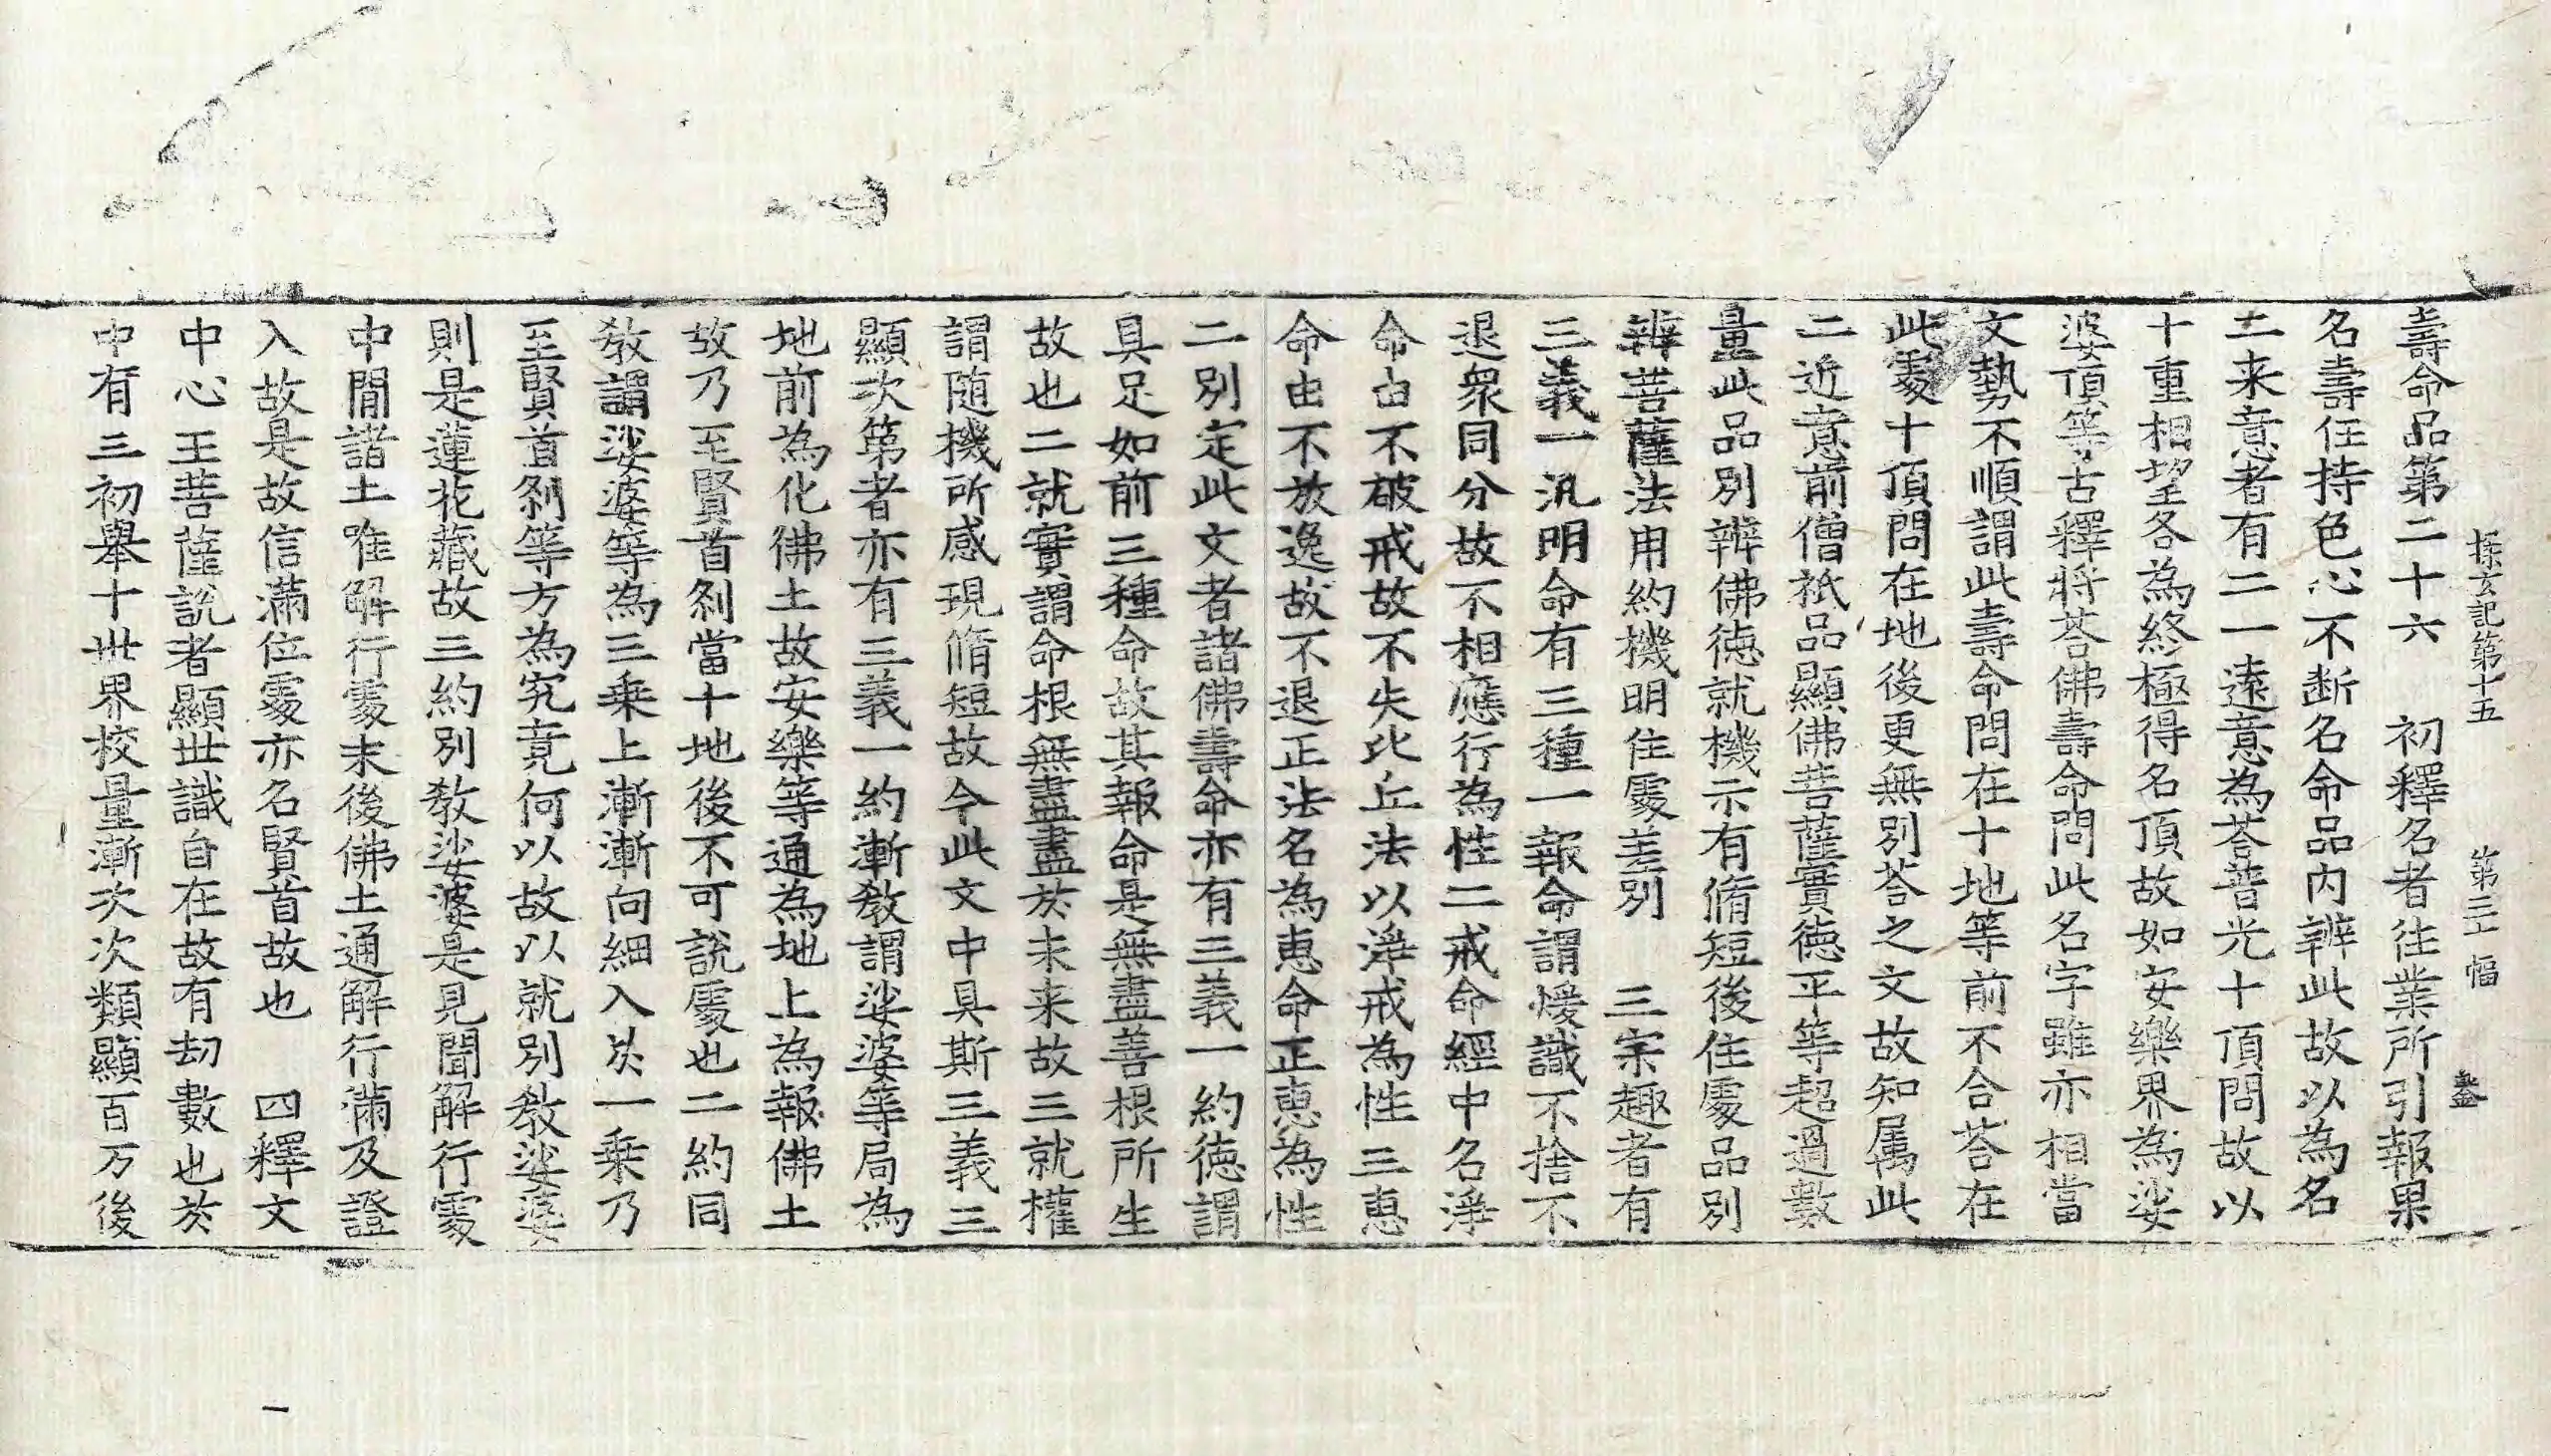 探玄記第十五　第三十幅　盡
壽命品第二十六　初釋名者往業所引報果
名壽任持色心不断名命品内辨此故以為名
二来意者有二一遠意為荅普光十頂問故以
十重相望各為終極得名頂故如安樂界為娑
婆頂等古釋將荅佛壽命問此名字雖亦相當
文勢不順謂此壽命問在十地等前不合荅在
此處十頂問在地後更無別荅之文故知属此
二近意前僧祇品顯佛菩薩實徳平等超過數
量此品別辨佛徳就機示有脩短後住處品別
辨菩薩法用約機明住處差別　三宗趣者有
三義一汎明命有三種一報命謂煖識不捨不
退衆同分故不相應行為性二戒命經中名淨
命由不破戒故不失比丘法以淨戒為性三惠
命由不放逸故不退正法名為惠命正惠為性
二別定此文者諸佛壽命亦有三義一約徳謂
具足如前三種命故其報命是無盡善根所生
故也二就實謂命根無盡盡於未来故三就權
謂随機所感現脩短故今此文中具斯三義三
顯次第者亦有三義一約漸教謂娑婆等局為
地前為化佛土故安樂等通為地上為報佛土
故乃至賢首剎當十地後不可說處也二約同
教謂娑婆等為三乗上漸漸向細入於一乗乃
至賢首剎等方為究竟何以故以就別教娑婆
則是蓮花藏故三約別教娑婆是見聞解行處
中間諸土唯解行處末後佛土通解行滿及證
入故是故信滿位處亦名賢首故也　四釋文
中心王菩薩說者顯世識自在故有劫數也於
中有三初舉十世界校量漸次次類顯百万後